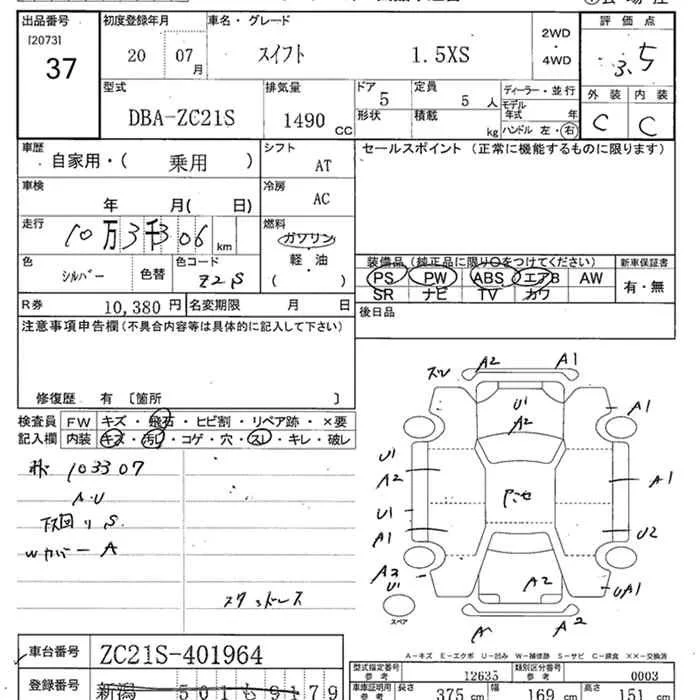 出品番号 初度登録年月 車名・グレード 評価点
[2073]
37
20 07 月
スイフト 1.5XS
2WD
・
4WD
3.5
型式 排気量 ドア 定員 ディーラー・並行
DBA-ZC21S 1490 CC 5 5 人
モデル年式 年
形状 積載 kg ハンドル 左・右
外装 内装
C C
車歴 シフト セールスポイント (正常に機能するものに限ります)
自家用・( 乗用 ) AT
車検 冷房
年 月( 日) AC
走行 燃料
10万3千306 km ガソリン
軽・油
( )
色 色コード
シルバー 色替 Z2S
装備品 (純正品に限り○をつけてください) 新車保証書
PS PW ABS エアB AW 有・無
SR ナビ TV カワ
R券 10,380 円 名変期限 月 日
後日品
注意事項申告欄(不具合内容等は具体的に記入して下さい)
修復歴 有 [箇所 ]
検査員 FW キズ・飛石・ヒビ割・リペア跡・×要
記入欄 内装 キズ・汚れ・コゲ・穴・スレ・キレ・破レ
103307
A.U
下回りS
Wカバー A
スタッドレス
A2 A1
U1
A2
A1
U1
A2
A1
U1
A1
U2
A2
U1
A2
UA1
A A2
スペア
A-キズ E-エクボ U-凹み W-補修跡 S-サビ C-腐食 ××-交換済
車台番号 ZC21S-401964
登録番号 新潟 501 も 9179
型式指定番号 参考 12635 類別区分番号 参考 0003
車庫証明用 参考 長さ 375 cm 幅 169 cm 高さ 151 cm